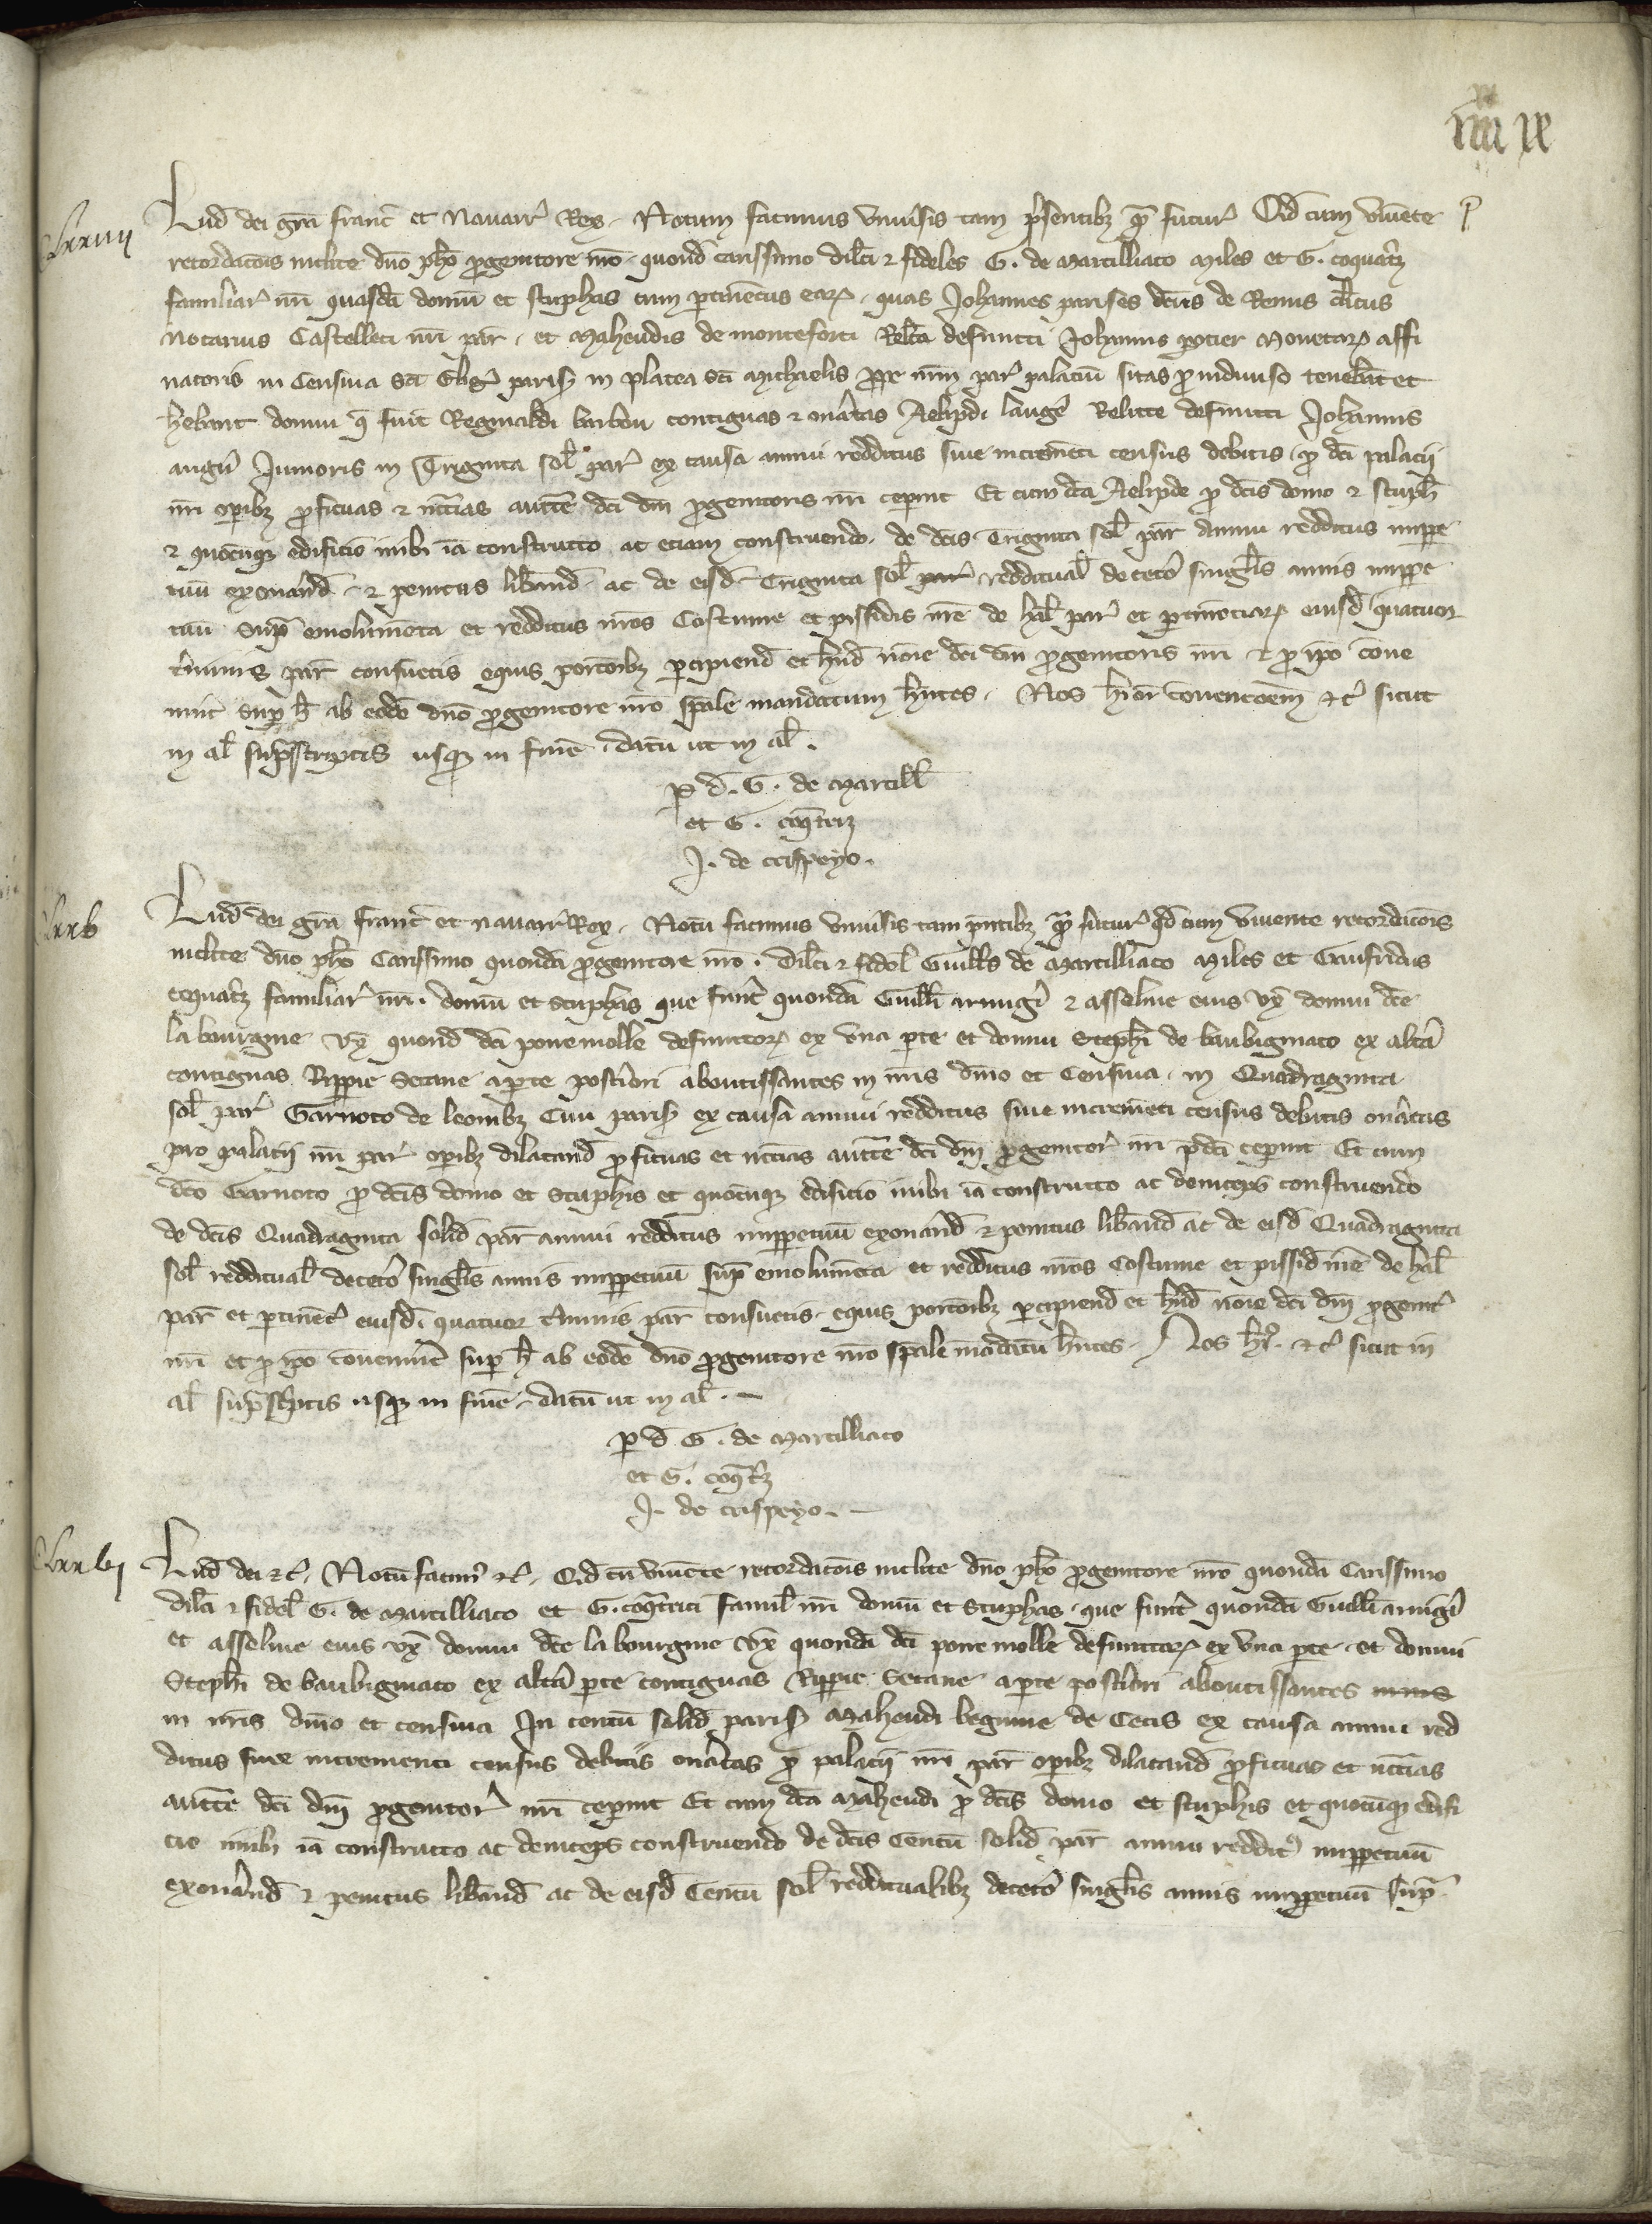 iiii xx
Lxxiiii
Lud dei gra franc et Nauarr Rex. Notum facimus vniusis tam psentibz qm futur Qd cum viuente
recordacois inclite dno pho pgenitore nro quond carissimo dilci et fideles G. de Marcilliaco Miles et G. coquatrz
familiar nri quasda domu et stuphas cum ptinetiis ear quas Johannes parises dcus de Remis clicus
Notarius Castelleti nri par et Mahendis de monteforti Relca defuncti Johannis potier Monetar affi
natoris in Censiua sci Eligii paris in platea sci Michaelis ppe nrm par palaciu sitas p indiuiso tenebat et
hebant domui q fuit Reginaldi barbou contiguas et onatas Aelipdi Relicte defuncti Johannis
augu Junioris in Triginta sol par ex causa annui redditus siue incremeti census debitis p dci palacii
nri opibz pficuas et nccias aucte dci dni pgenitoris nri cepint Et cum dca Aelipde p dcis domo et stuph
et quocuqz edificio inibi ia constructo ac eciam construendo de dcis Triginta sol par annui redditus imppe
tuu exonand et penitus liband ac de eisd Triginta sol par reddituał deceto singlis annis imppe
tuu sup emolumeta et redditus nros Costume et pissidis nre de hal par et ptinociar eiusd quatuor
tminis par consuetis equis porcoibz pcipiend et hnd noie dci dni pgenitoris nri et p ipo coue
nint sup h ab eode dno pgenitore nro spale mandatum hntes. Nos hior couencoem etc sicut
in al suprascriptis usqz in fine. datu ut in al.
p d. G. de Marcill
et G. coqtrz
J. de crispeyo.
Lxxv
Lud dei gra franc et nauarr Rex. Notu facimus vniusis tam pntibz qm futur qd cum viuente recordacois
inclite dno pho Carissimo quonda pgenitore nro. dilci et fidel Guills de Marcilliaco Miles et Gaufridus
coquatrz familiar nri. domu et stuphas que funt quonda Guilli armigi et asseline eius vx domui dce
la bourgine vx quond dci ponemolle defunctor ex vna pte et domui Stephi de baubigniaco ex alta
contiguas Rippie Secane a pte postiori aboutissantes in nris dnio et Censiua. in Quadraginta
sol par Garnoto de leonibz Ciui paris ex causa annui redditus siue incremeti census debitis onatas
pro palacii nri par opibz dilatand pficuas et nccias aucte dci dni pgenitor nri pdci cepint Et cum
dco Garnoto p dcis domo et stuphis et quocuqz edificio inibi ia constructo ac deinceps construendo
de dcis Quadraginta solid par annui redditus imppetuu exonand et penitus liband ac de eisd Quadraginta
sol reddituał deceto singlis annis imppetuu sup emolumeta et redditus nros Costume et pissid nre de hal
par et ptinec eiusd quatuor tminis par consuetis equis porcoibz pcipiend et hnd noie dci dni pgenit
nri et p ipo couenint sup h ab eode dno pgenitore nro spale madatu hntes. Nos h etc sicut in
al suprascptis usqz in fine. datu ut in al.
p d G. de Marcilliaco
et G. coqtz
J. de crispeyo.
Lxxvi
Lud dei etc. Notu facim etc. Qd cu viuete recordacois inclite dno pho pgenitore nro quonda Carissimo
dilci et fidel G. de Marcilliaco et G. coqtrici famil nri domu et stuphas que funt quonda Guilli armigi
et asseline eius vx domui dce la bourgine vx quonda dci ponemolle defunctor ex vna pte et domui
Stephi de baubigniaco ex alta pte contiguas Rippie Secane a pte postiori aboutissantes
in nris dnio et censiua In centu solid paris Mahendi beguine de Cecis ex causa annui red
ditus siue incrementi census debitis onatas p palacii nri par opibz dilatand pficuas et nccias
aucte dci dni pgenitor nri cepint Et cum dca Mahendi p dcis domo et stuphis et quocuqz edifi
cio inibi ia constructo ac deinceps construendo de dcis Centu solid par annui reddit imppetuu
exonand et penitus liband ac de eisd Centu sol redditualibz deceto singlis annis imppetuu sup